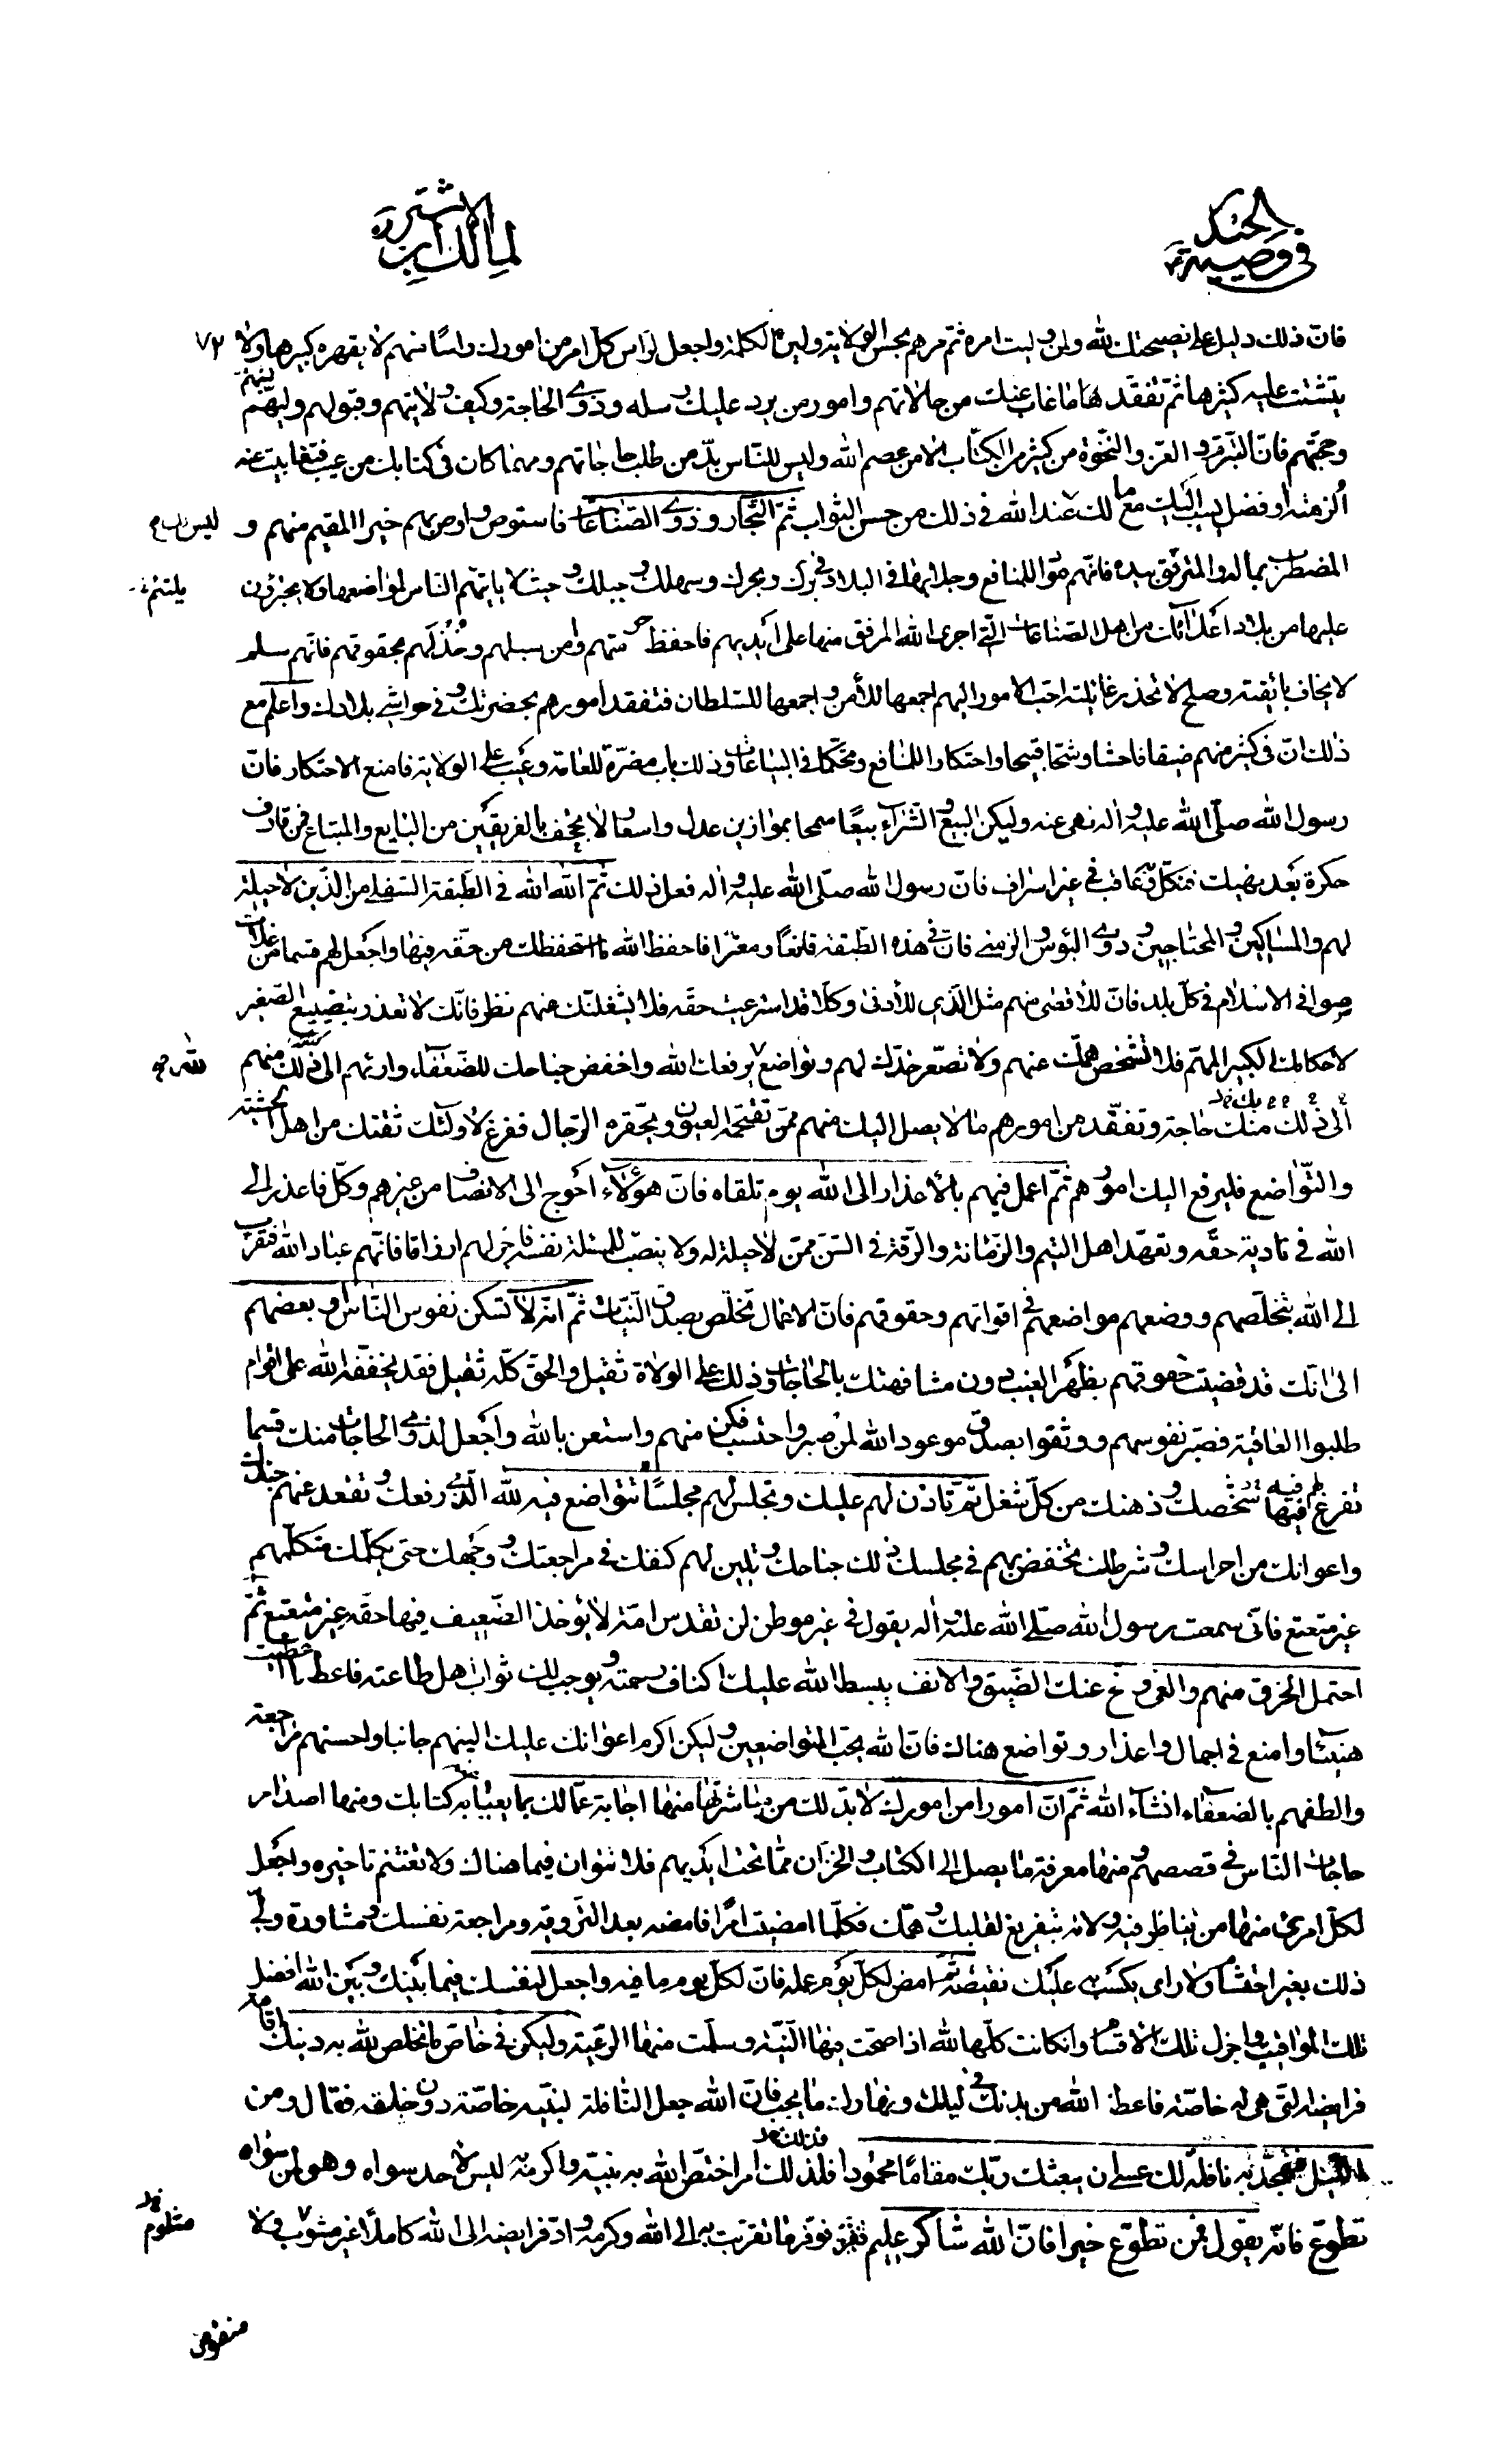 لمالك الأشتر ره
في وصيته
فان ذلك دليل على نصيحتك لله ولمن وليت امره ثم مرهم بحسن الولاية ولين الكلمة واجعل لراس كل امر من امورك راسا منهم لا يقهره كبيرها ولا
٧٣
يتشتت عليه كثيرها ثم تفقد ما غاب عنك من حالاتهم وامور من يرد عليك رسله وذوي الحاجة وكيف ولايتهم وقبولهم وليهم
وحجتهم فان التبرم والعز والنخوة من كثير من الكتاب الا من عصم الله وليس للناس بد من طلب حاجاتهم ومهما كان في كتابك من عيب فتغابيت عنه
الزمته او فضل نسب اليك مع ما لك عند الله في ذلك من حسن الثواب ثم التجار وذوي الصناعات فاستوص واوص بهم خيرا المقيم منهم و
المضطرب بماله والمترفق بيده فانهم مواد للمنافع وجلابها في البلاد في برك وبحرك وسهلك وجبلك وحيث لا ياتيهم الناس لمواضعها ولا يجترؤن
يلتئم
عليها من بلاد اعدائك من اهل الصناعات التي اجرى الله المرفق منها على ايديهم فاحفظ حرمتهم وامن سبلهم وخذ لهم بحقوقهم فانهم سلم
لا يخاف بائقته وصلح لا تحذر غائلته احب الامور اليهم اجمعها للأمن واجمعها للسلطان فتفقد امورهم بحضرتك وفي حواشي بلادك واعلم مع
ذلك ان في كثير منهم ضيقا فاحشا وشحا قبيحا واحتكارا للمنافع وتحكما في البياعات وذلك باب مضرة للعامة وعيب على الولاية فامنع الاحتكار فان
رسول الله صلى الله عليه واله نهى عنه وليكن البيع والشراء بيعا سمحا بموازين عدل واسعار لا يجحف بالفريقين من البايع والمبتاع فمن قارف
حكرة بعد نهيك فنكل وعاقب في غير اسراف فان رسول الله صلى الله عليه واله فعل ذلك ثم الله الله في الطبقة السفلى من الذين لا حيلة
لهم والمساكين والمحتاجين وذوي البؤس والزمنى فان في هذه الطبقة قانعا ومعترا فاحفظ الله ما استحفظك من حقه فيها واجعل لهم قسما من غلات
صوافي الاسلام في كل بلد فان للأقصى منهم مثل الذي للأدنى وكلا قد استرعيت حقه فلا يشغلنك عنهم نظر فانك لا تعذر بتضييع الصغير
لاحكامك الكبير المهم فلا تشخص همك عنهم ولا تصعر خدك لهم وتواضع يرفعك الله واخفض جناحك للضعفاء وارئهم الى ذلك منهم
لله
الى ذلك منك حاجة وتفقد من امورهم ما لا يصل اليك منهم ممن تقتحمه العيون وتحقره الرجال ففرغ لاولئك ثقتك من اهل الخشية
والتواضع فليرفع اليك امورهم ثم اعمل فيهم بالأعذار الى الله يوم تلقاه فان هؤلاء احوج الى الانصاف من غيرهم وكل فاعذر الى
الله في تادية حقه وتعهد اهل اليتم والزمانة والرقة في السن ممن لا حيلة له ولا ينصب للمسئلة نفسه فاجر لهم ارزاقا فانهم عباد الله فتقرب
الى الله بتخلصهم ووضعهم مواضعهم في اقواتهم وحقوقهم فان الاعمال تخلص بصدق النيات ثم انه لا تسكن نفوس الناس او بعضهم
الى انك قد قضيت حقوقهم بظهر الغيب دون مشافهتك بالحاجات وذلك على الولاة ثقيل والحق كله ثقيل وقد يخففه الله على اقوام
طلبوا العاقبة فصبر نفوسهم ووثقوا بصدق موعود الله لمن صبر واحتسب فكن منهم واستعن بالله واجعل لذوي الحاجات منك قسما
تفرغ لهم فيه شخصك وذهنك من كل شغل ثم تاذن لهم عليك وتجلس لهم مجلسا تتواضع فيه لله الذي رفعك وتقعد عنهم جندك
واعوانك من احراسك وشرطك تخفض لهم في مجلسك ذلك جناحك وتلين لهم كنفك في مراجعتك ووجهك حتى يكلمك متكلمهم
غير متعتع فاني سمعت رسول الله صلى الله عليه واله يقول في غير موطن لن تقدس امة لا يؤخذ الضعيف فيها حقه غير متعتع ثم
احتمل الخرق منهم والعي ونح عنك الضيق والانف يبسط الله عليك اكناف رحمته ويوجب لك ثواب اهل طاعته فاعط ما اعطيت
هنيئا وامنع في اجمال واعذار وتواضع هناك فان الله يحب المتواضعين وليكن اكرم اعوانك عليك الينهم جانبا واحسنهم مراجعة
والطفهم بالضعفاء انشاء الله ثم ان امورا من امورك لا بد لك من مباشرتها منها اجابة عمالك بما يعيا به كتابك ومنها اصدار
حاجات الناس في قصصهم ومنها معرفة ما يصل الى الكتاب والخزان مما تحت ايديهم فلا تتوان فيما هناك ولا تغتنم تاخيره واجعل
لكل امرئ منها من يناظر فيه ولاته بتفريغ لقلبك وهمك فكلما امضيت امرا فامضه بعد التروية ومراجعة نفسك ومشاورة ولي
ذلك بغير احتشام ولا راي يكسب عليك نقيضه ثم امض لكل يوم عمله فان لكل يوم ما فيه واجعل لنفسك فيما بينك وبين الله افضل
تلك المواقيت واجزل تلك الاقسام وانكانت كلها لله اذا صحت فيها النية وسلمت منها الرعية وليكن في خاص ما تخلص لله به دينك اقامة
فرايضه التي هي له خاصة فاعط الله من بدنك في ليلك ونهارك ما يجب فان الله جعل النافلة لنبيه خاصة دون خلقه فقال ومن
الليل فتهجد به نافلة لك عسى ان يبعثك ربك مقاما محمودا فذلك امر اختص الله به نبيه واكرمه به ليس لاحد سواه وهو لمن سواه
تطوع فانه يقول فمن تطوع خيرا فان الله شاكر عليم فوفر ما تقربت به الى الله وكرمه واد فرايضه الى الله كاملا غير مثلوب ولا
مثلوم
منقوص